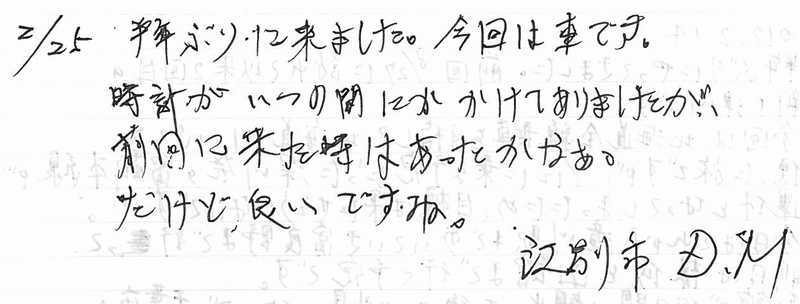 2/25 半年ぶりに来ました。今回は車です。
時計がいつの間にかかけてありましたが、
前回に来た時はあったかなあ。
だけど、良いですね。
江別市 D.M